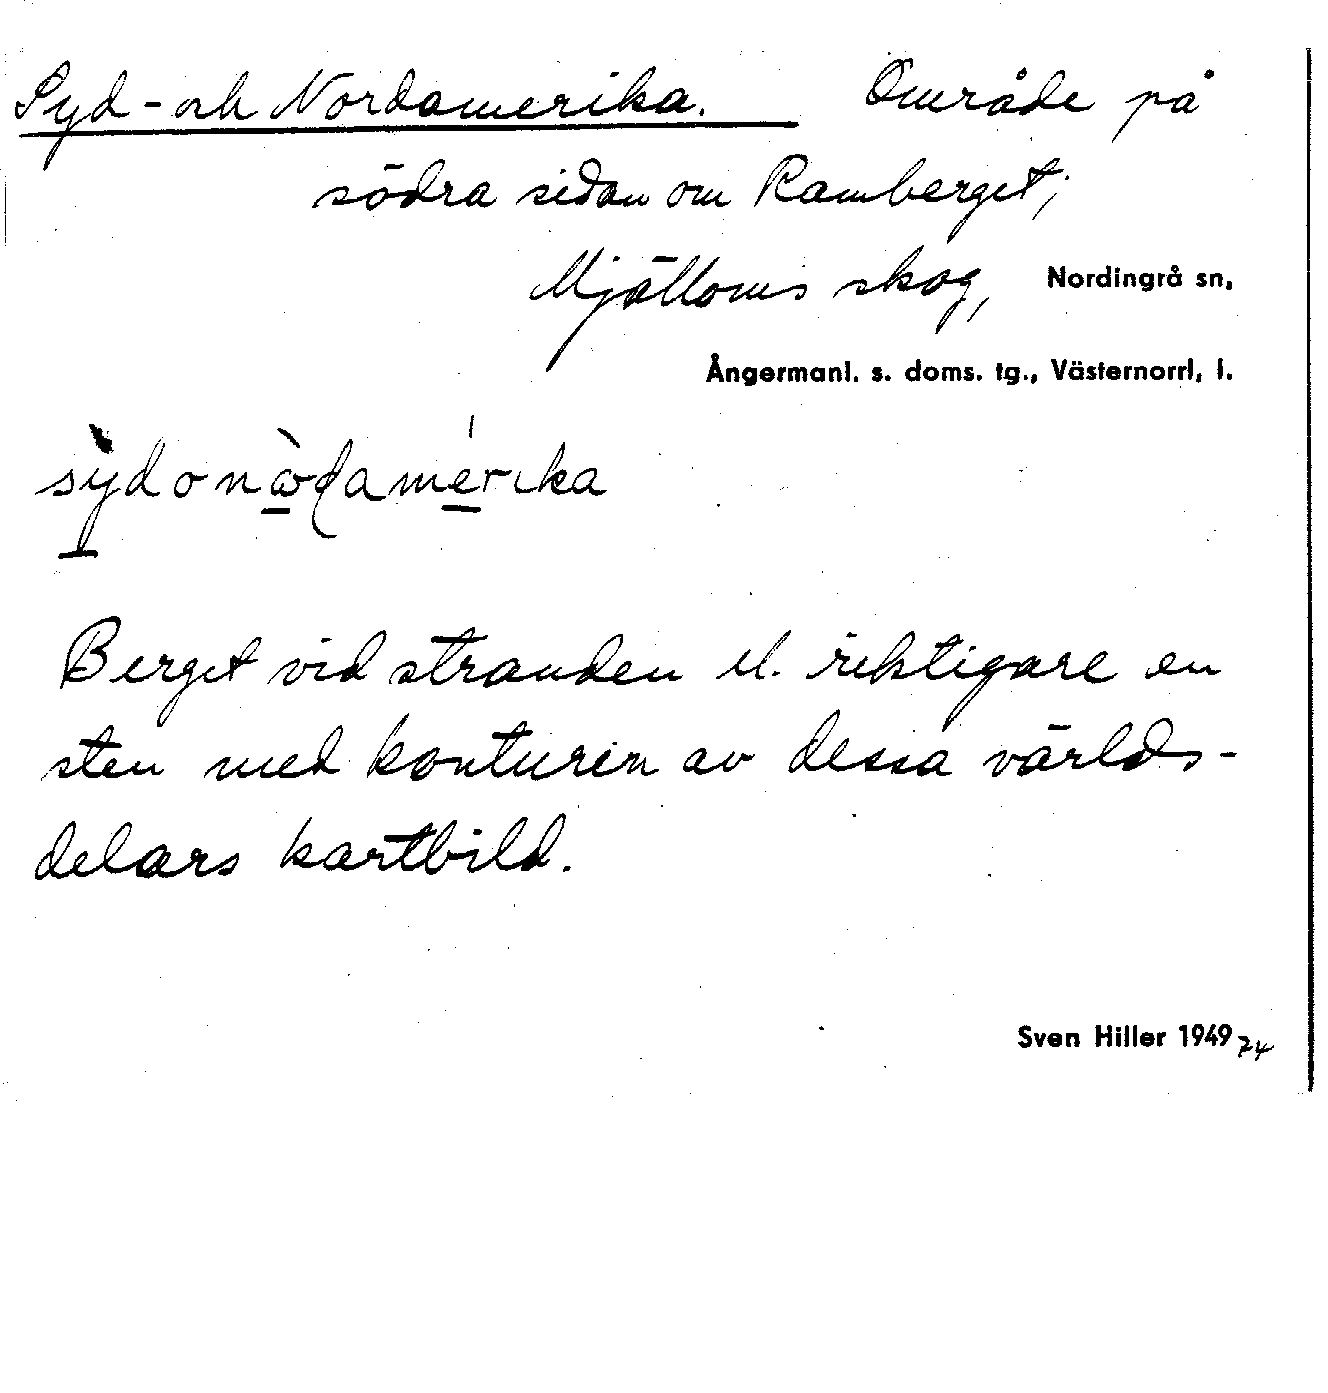 Syd- och Nordamerika. Område på
södra sidan om Ramberget;
Mjälloms skog, Nordingrå sn,
Ångermanl. s. doms. tg., Västernorrl. l.
Berget vid stranden el. riktigare en
sten med konturen av dessa världs-
delars kartbild.
Sven Hiller 1949 74